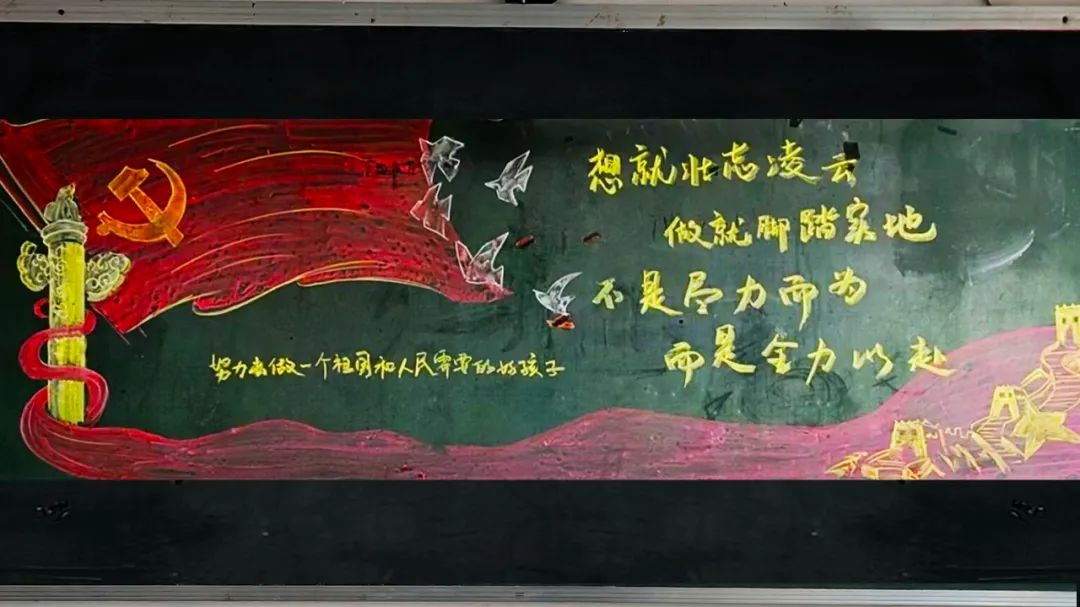 想就壮志凌云
做就脚踏实地
不是尽力而为
而是全力以赴
努力去做一个祖国和人民需要的好孩子